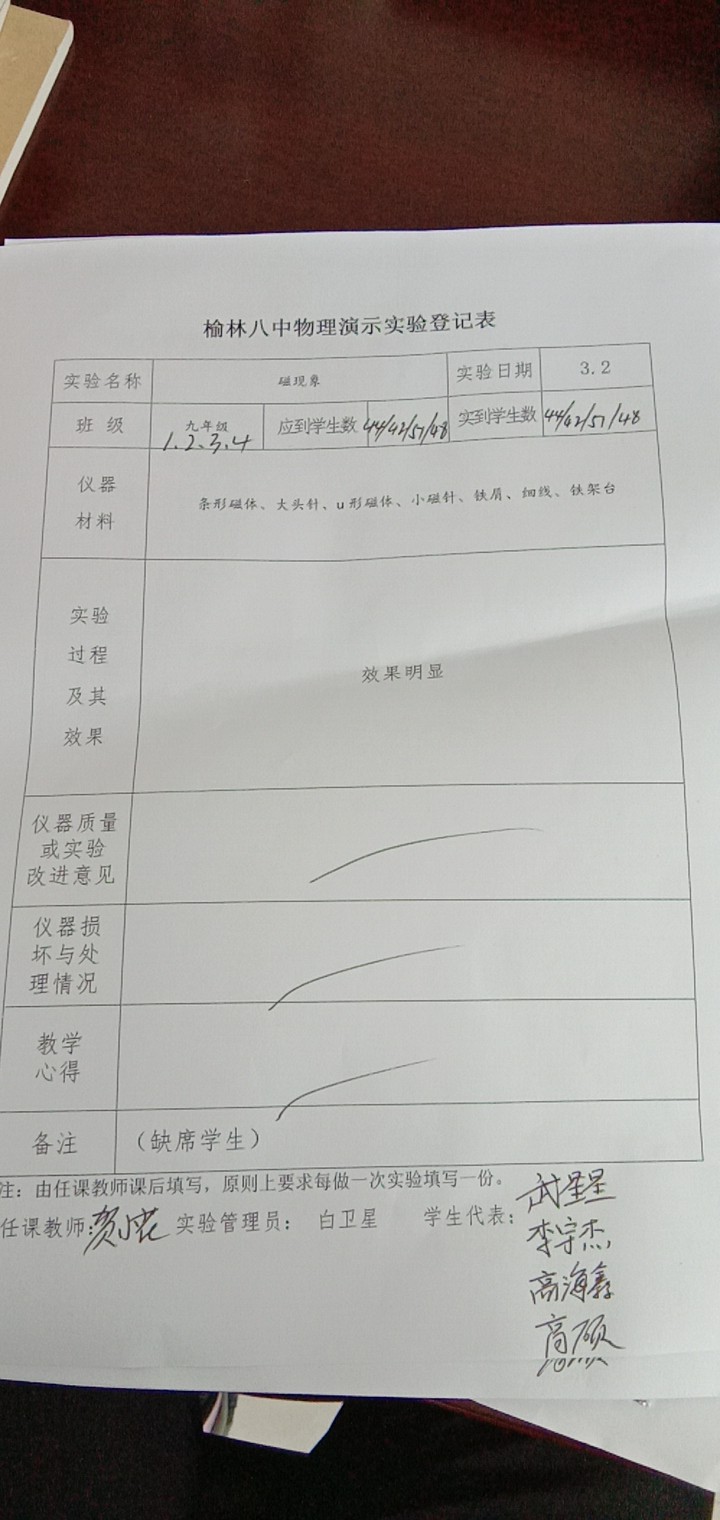 榆林八中物理演示实验登记表
实验名称 磁现象 实验日期 3.2
班 级 九年级 1.2.3.4 应到学生数 44/42/51/48 实到学生数 44/42/51/48
仪器
材料
条形磁体、大头针、u形磁体、小磁针、铁屑、细线、铁架台
实验
过程
及其
效果
效果明显
仪器质量
或实验
改进意见
仪器损
坏与处
理情况
教学
心得
备注 （缺席学生）
注：由任课教师课后填写，原则上要求每做一次实验填写一份。
任课教师: 贺 实验管理员： 白卫星 学生代表: 武星星
李宇杰
高海鑫
高硕